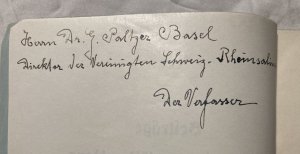 Herrn Dr. G. Saltzer Basel
Direktor der Vereinigten Schweiz. Rheinsalin
Der Verfasser